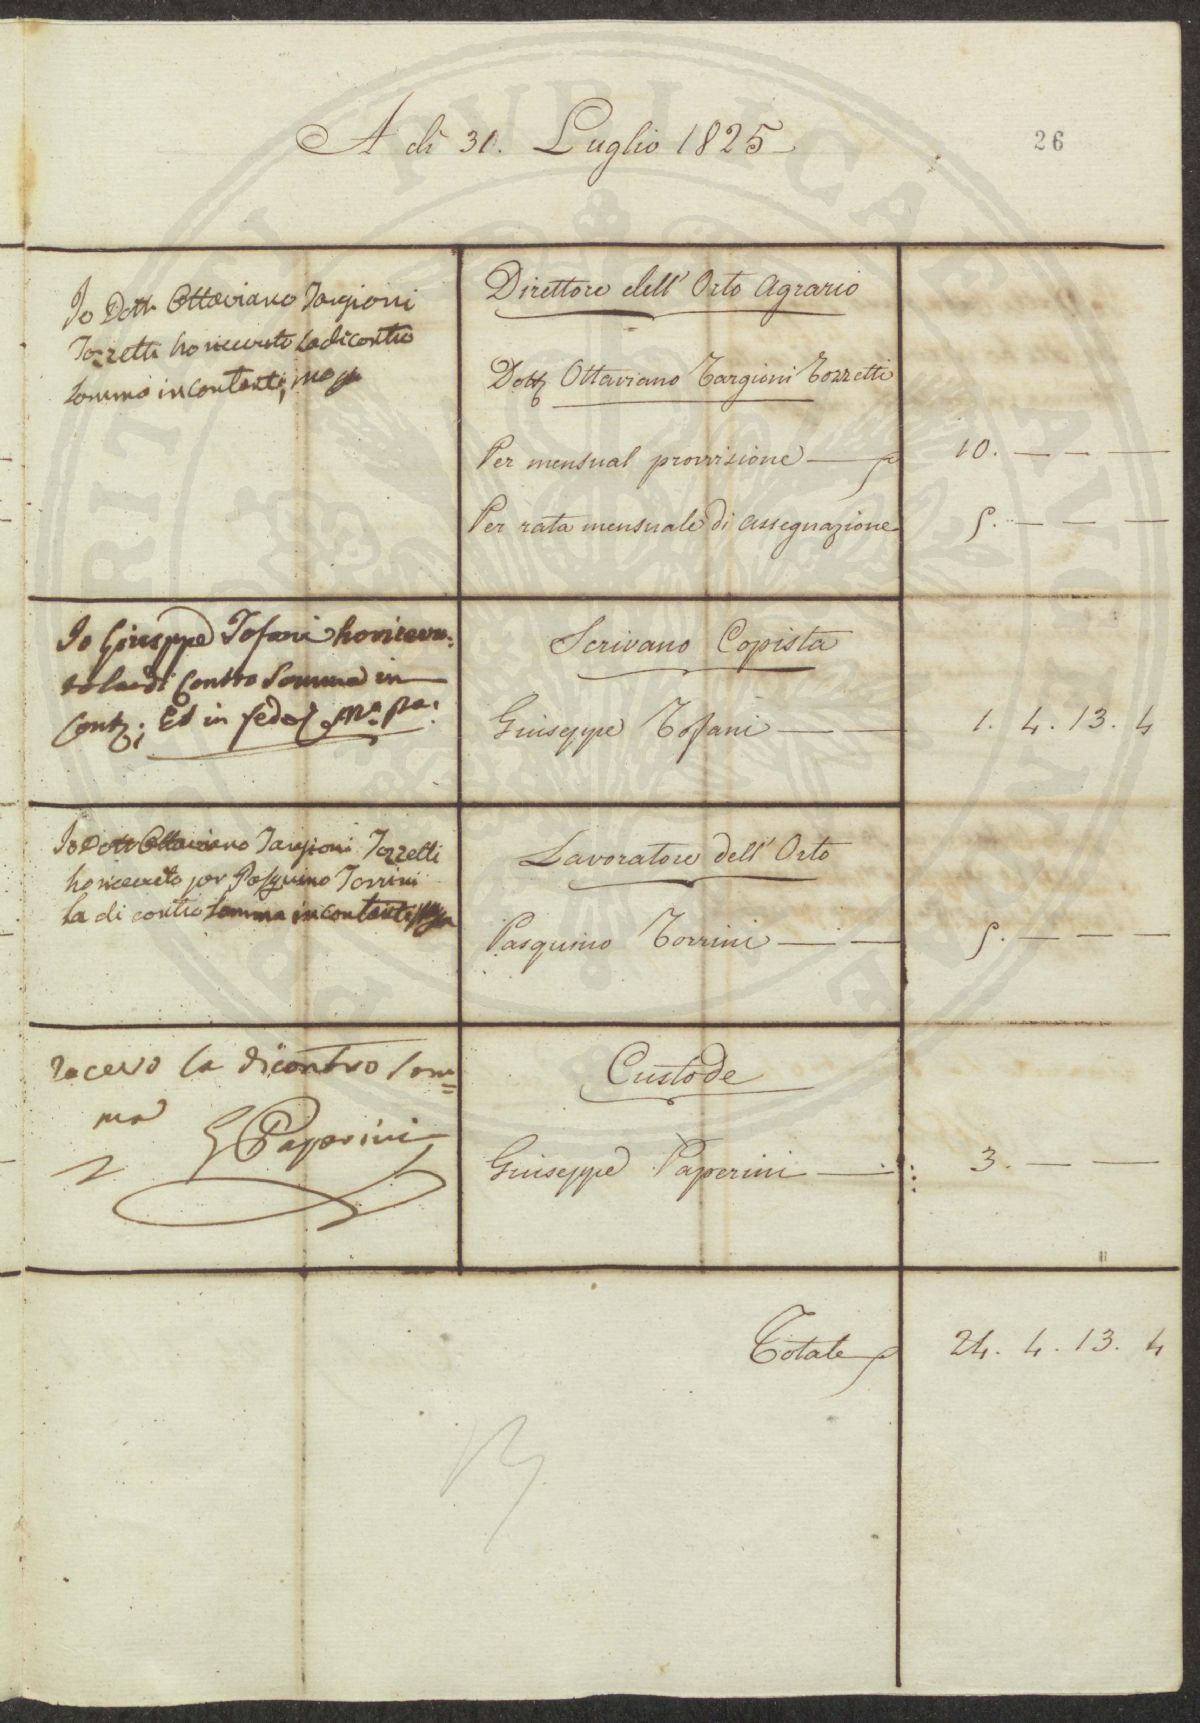 A dì 31. Luglio 1825
26
Io Dott. Ottaviano Targioni
Tozzetti ho ricevuto la di contro
somma in contanti,
Direttore dell' Orto Agrario
Dott. Ottaviano Targioni Tozzetti
Per mensual provvisione — 10. — — —
Per rata mensuale di assegnazione 5. — — —
Io Giuseppe Tofani ho ricevu:
to la di contro Somma in
Cont.; Ed in fede Mo. Pa.
Scrivano Copista
Giuseppe Tofani — — 1. 4. 13. 4
Io Dott Ottaviano Targioni Tozzetti
ho ricevuto per Pasquino Torrini
la di contro somma in contanti
Lavoratore dell' Orto
Pasquino Torrini — — 5. — — —
recevo la dicontro som=
ma
G Paperini
Custode
Giuseppe Paperini — 3. — —
Totale 24. 4. 13. 4